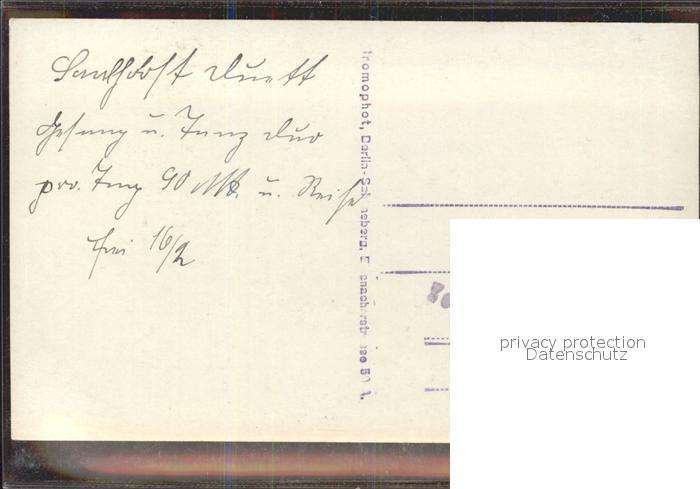 Duett
Gesang u. Tanz Duo
pro. Tag 90 Mk. u. Reise
frei 16/2
Bromophot, Berlin-Schöneberg,
privacy protection
Datenschutz